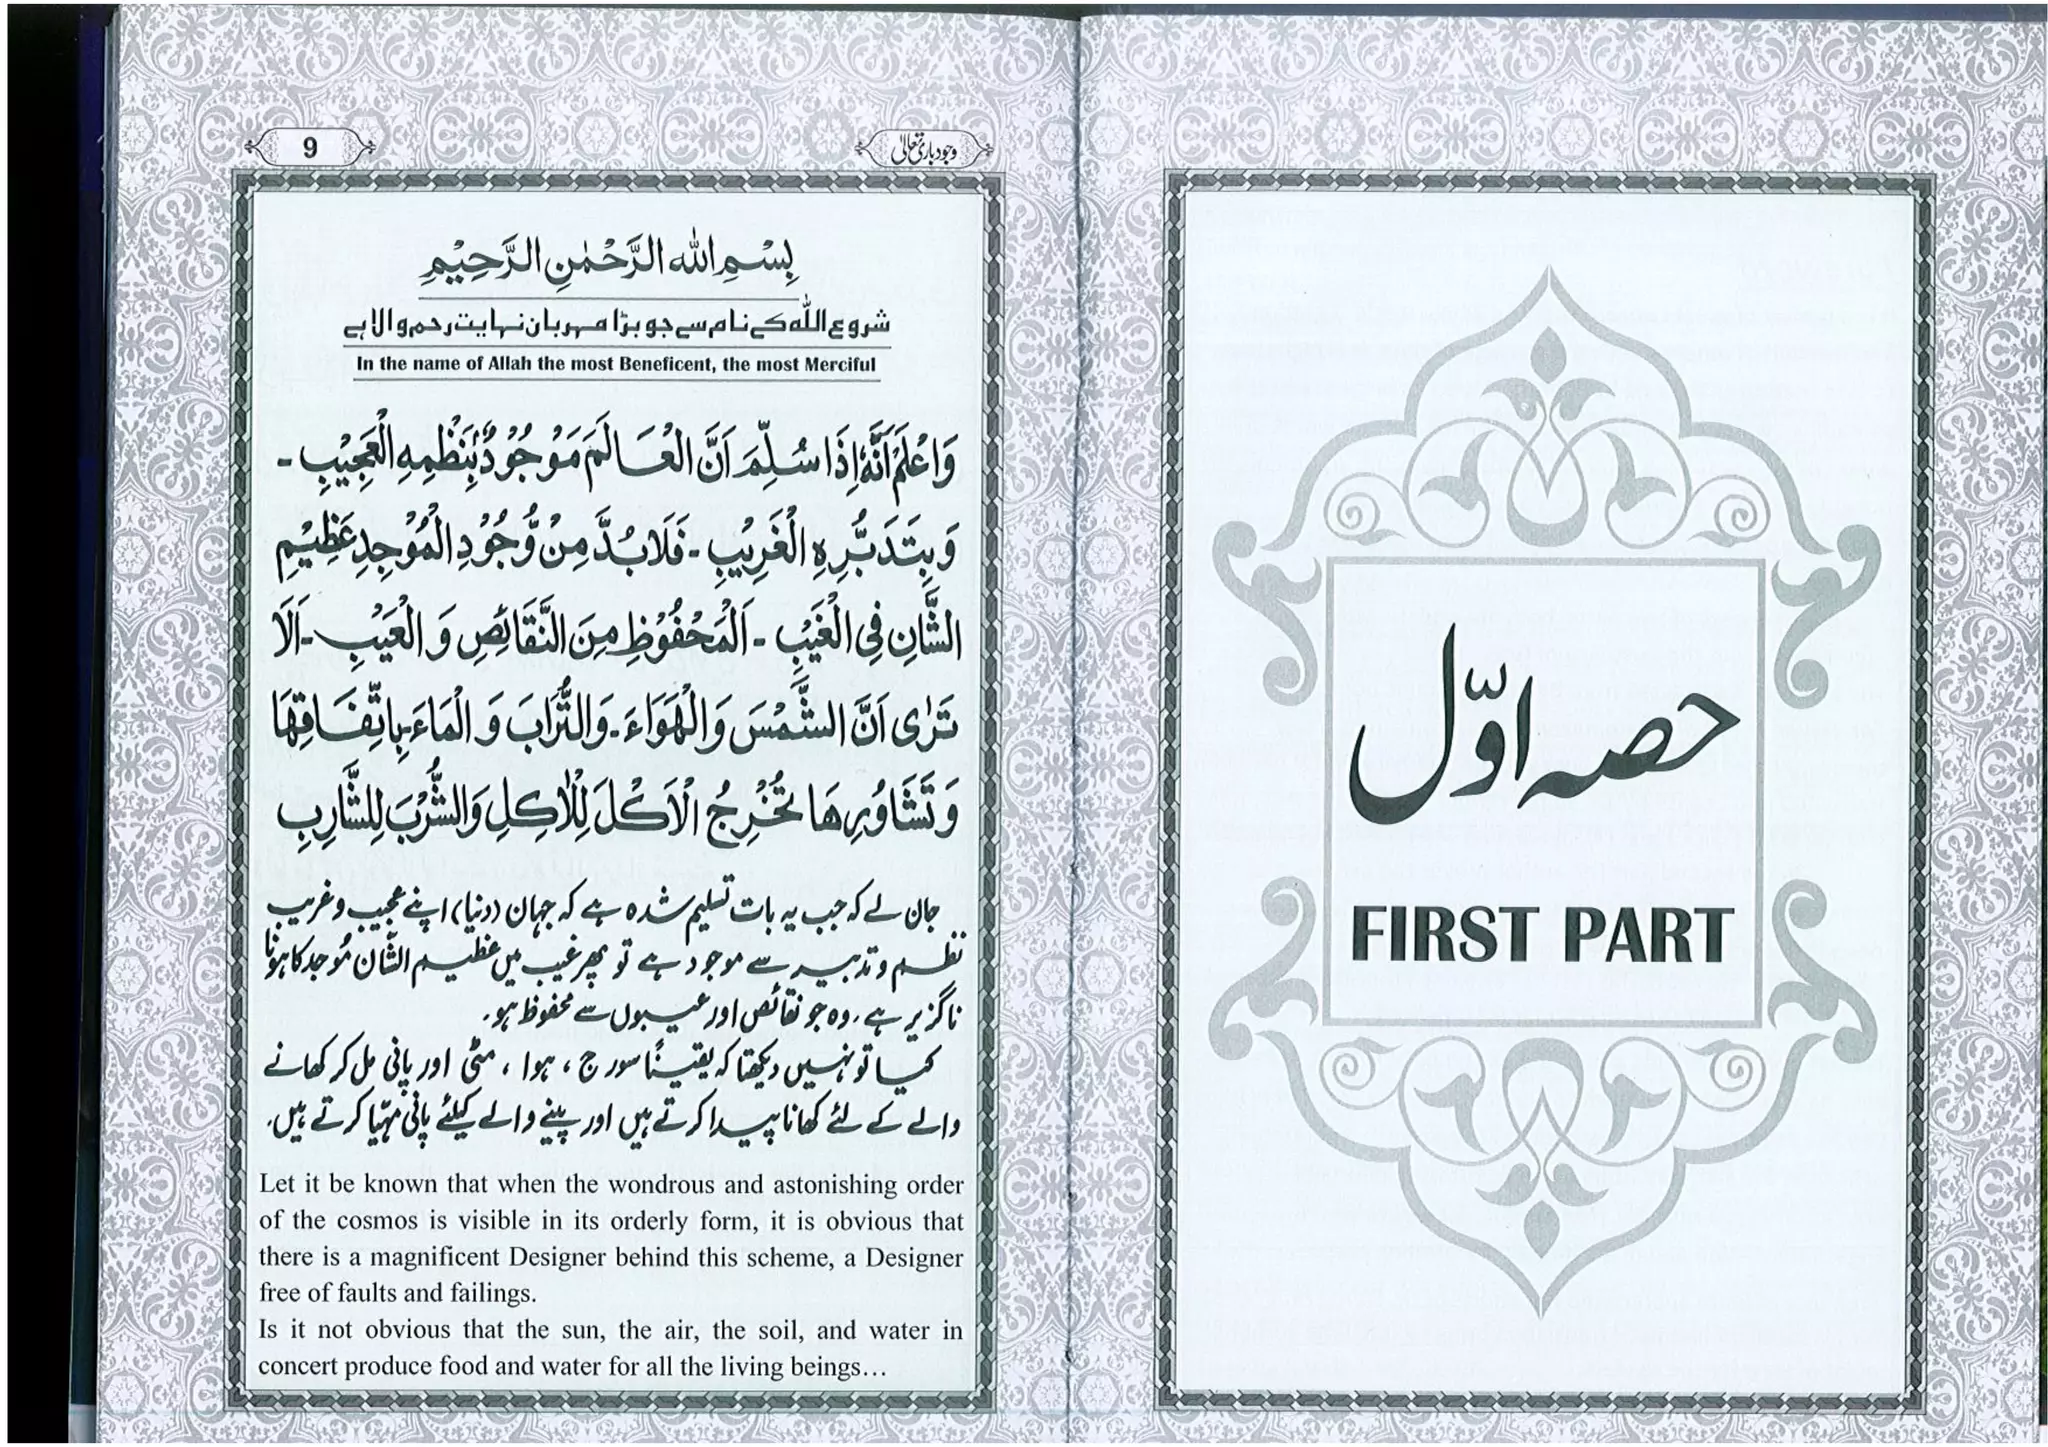 حصہ اوّل
FIRST PART
9
وجود باری تعالیٰ
بِسْمِ اللهِ الرَّحْمٰنِ الرَّحِيْمِ
شروع اللّٰه کے نام سے جو بڑا مہربان نہایت رحم والا ہے
In the name of Allah the most Beneficent, the most Merciful
وَاعْلَمْ اَنَّهٗ اِذَا سُلِّمَ اَنَّ الْعَالَمَ مَوْجُوْدٌ بِنَظْمِهِ الْعَجِيْبِ -
وَبِتَدَبُّرِهِ الْغَرِيْبِ - فَلَابُدَّ مِنْ وُّجُوْدِ الْمُوْجِدِ عَظِيْمِ
الشَّانِ فِي الْغَيْبِ - اَلْمَحْفُوْظِ مِنَ النَّقَائِصِ وَ الْعَيْبِ - اَلَا
تَرٰى اَنَّ الشَّمْسَ وَالْهَوَاءَ - وَالتُّرَابَ وَ الْمَاءَ بِاتِّفَاقِهَا
وَتَشَاوُرِهَا تُخْرِجُ الْاَكْلَ لِلْاٰكِلِ وَالشُّرْبَ لِلشَّارِبِ
جان لے کہ جب یہ بات تسلیم شدہ ہے کہ جہان (دنیا) اپنے عجیب و غریب
نظم و تدبیر سے موجود ہے تو پھر غیب میں عظیم الشّان مُوجد کا ہونا
ناگزیر ہے، وہ جو نقائص اور عیبوں سے محفوظ ہو۔
کیا تو نہیں دیکھتا کہ یقینًا سورج ، ہوا ، مٹی اور پانی مل کر کھانے
والے کے لئے کھانا پیدا کرتے ہیں اور پینے والے کیلئے پانی مہیّا کرتے ہیں۔
Let it be known that when the wondrous and astonishing order
of the cosmos is visible in its orderly form, it is obvious that
there is a magnificent Designer behind this scheme, a Designer
free of faults and failings.
Is it not obvious that the sun, the air, the soil, and water in
concert produce food and water for all the living beings…